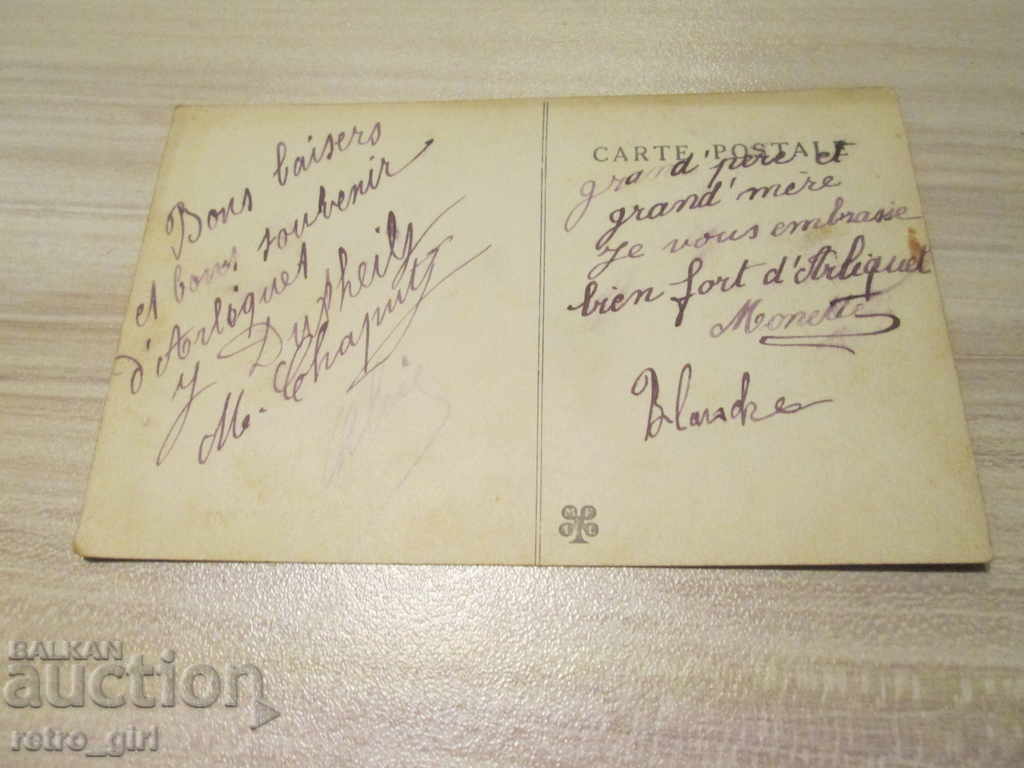 Bons baisers
et bons souvenir
d'Arliquet
y Dutheil
M. Chaput
CARTE POSTALE
grand'père et
grand'mère
Je vous embrasse
bien fort d'Arliquet
Monette
Blanche
M F
I L
BALKAN
auction
retro_girl